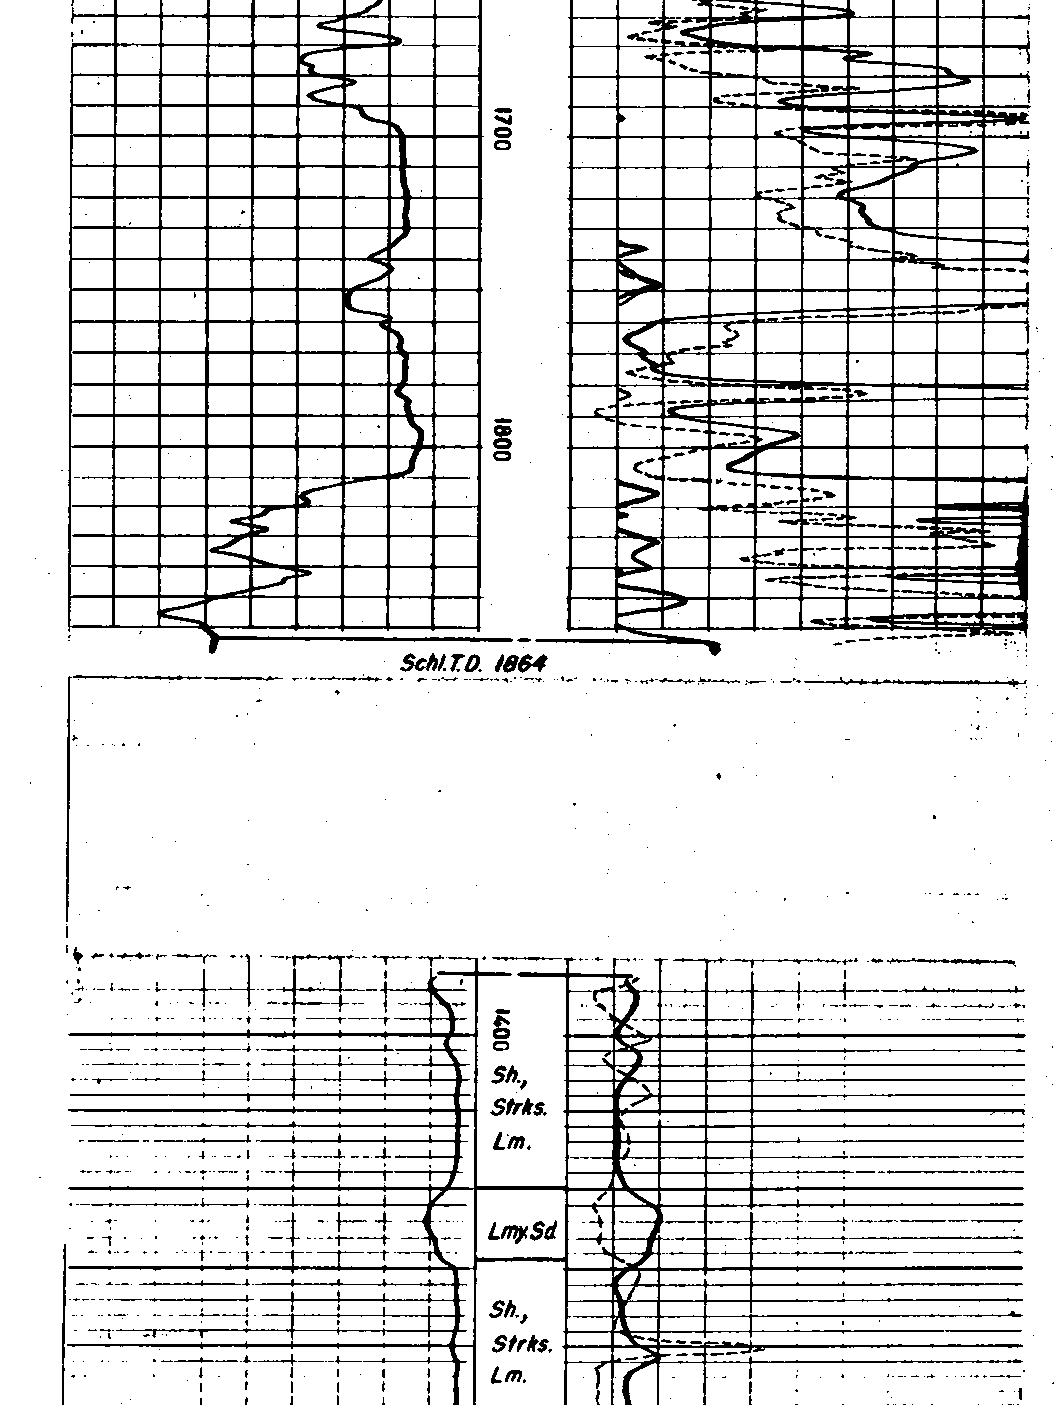 1700
1800
Schl.T.D. 1864
1400
Sh.,
Strks.
Lm.
Lmy.Sd
Sh.,
Strks.
Lm.